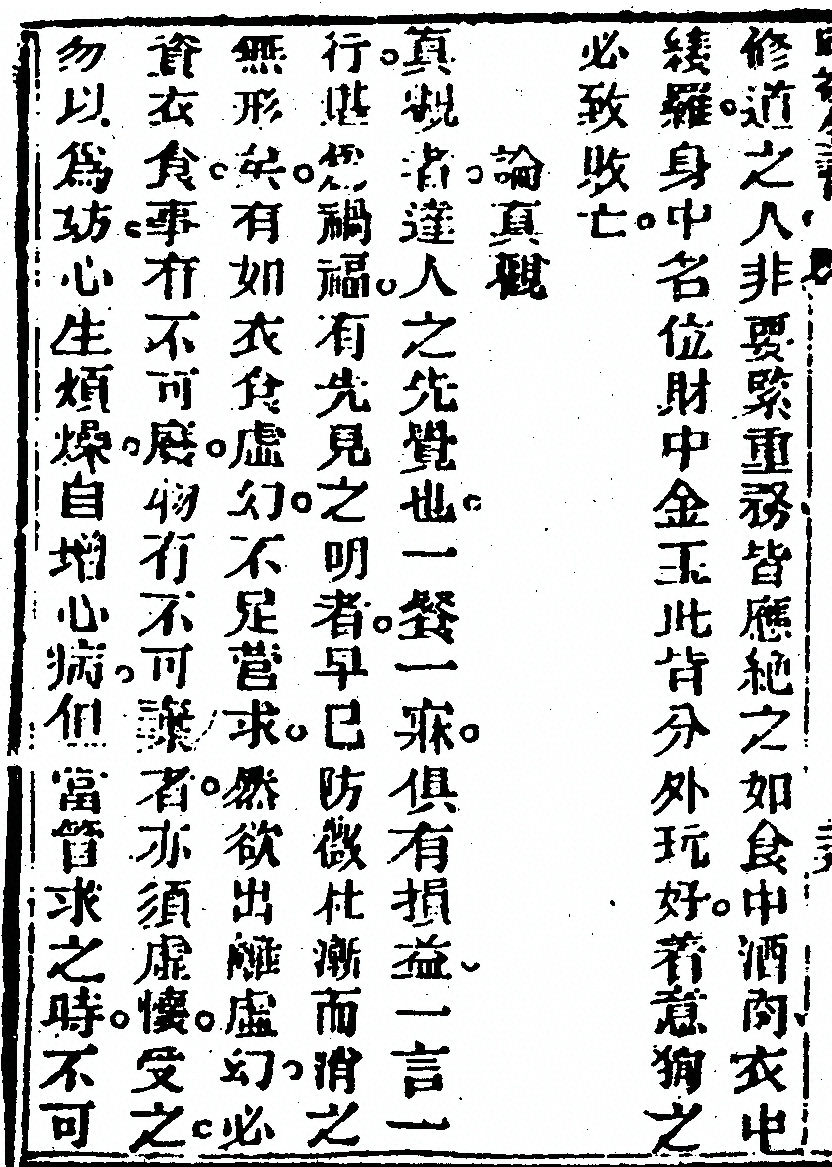 修道之人。非要緊重務。皆應絶之如食中酒肉。衣中
綾羅。身中名位財中金玉此皆分外玩好。着意狥之
必致敗亡。
論真觀
真觀者。達人之先覺也。一餐一寐。俱有損益。一言一
行。堪爲禍福。有先見之明者。早已防微杜漸而消之
無形矣。有如衣食虛幻。不足營求。然欲出離虛幻。必
資衣食。事有不可廢。物有不可者。亦須虛懷。受之。
勿以爲妨。心生煩燥。自增心病。但當營求之時。不可